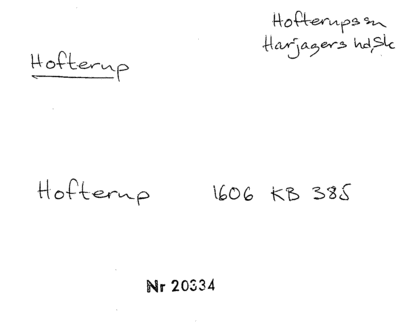 Hofterupssn
Harjagers hd, Sk
Hofterup
Hofterup 1606 KB 385
Nr 20334